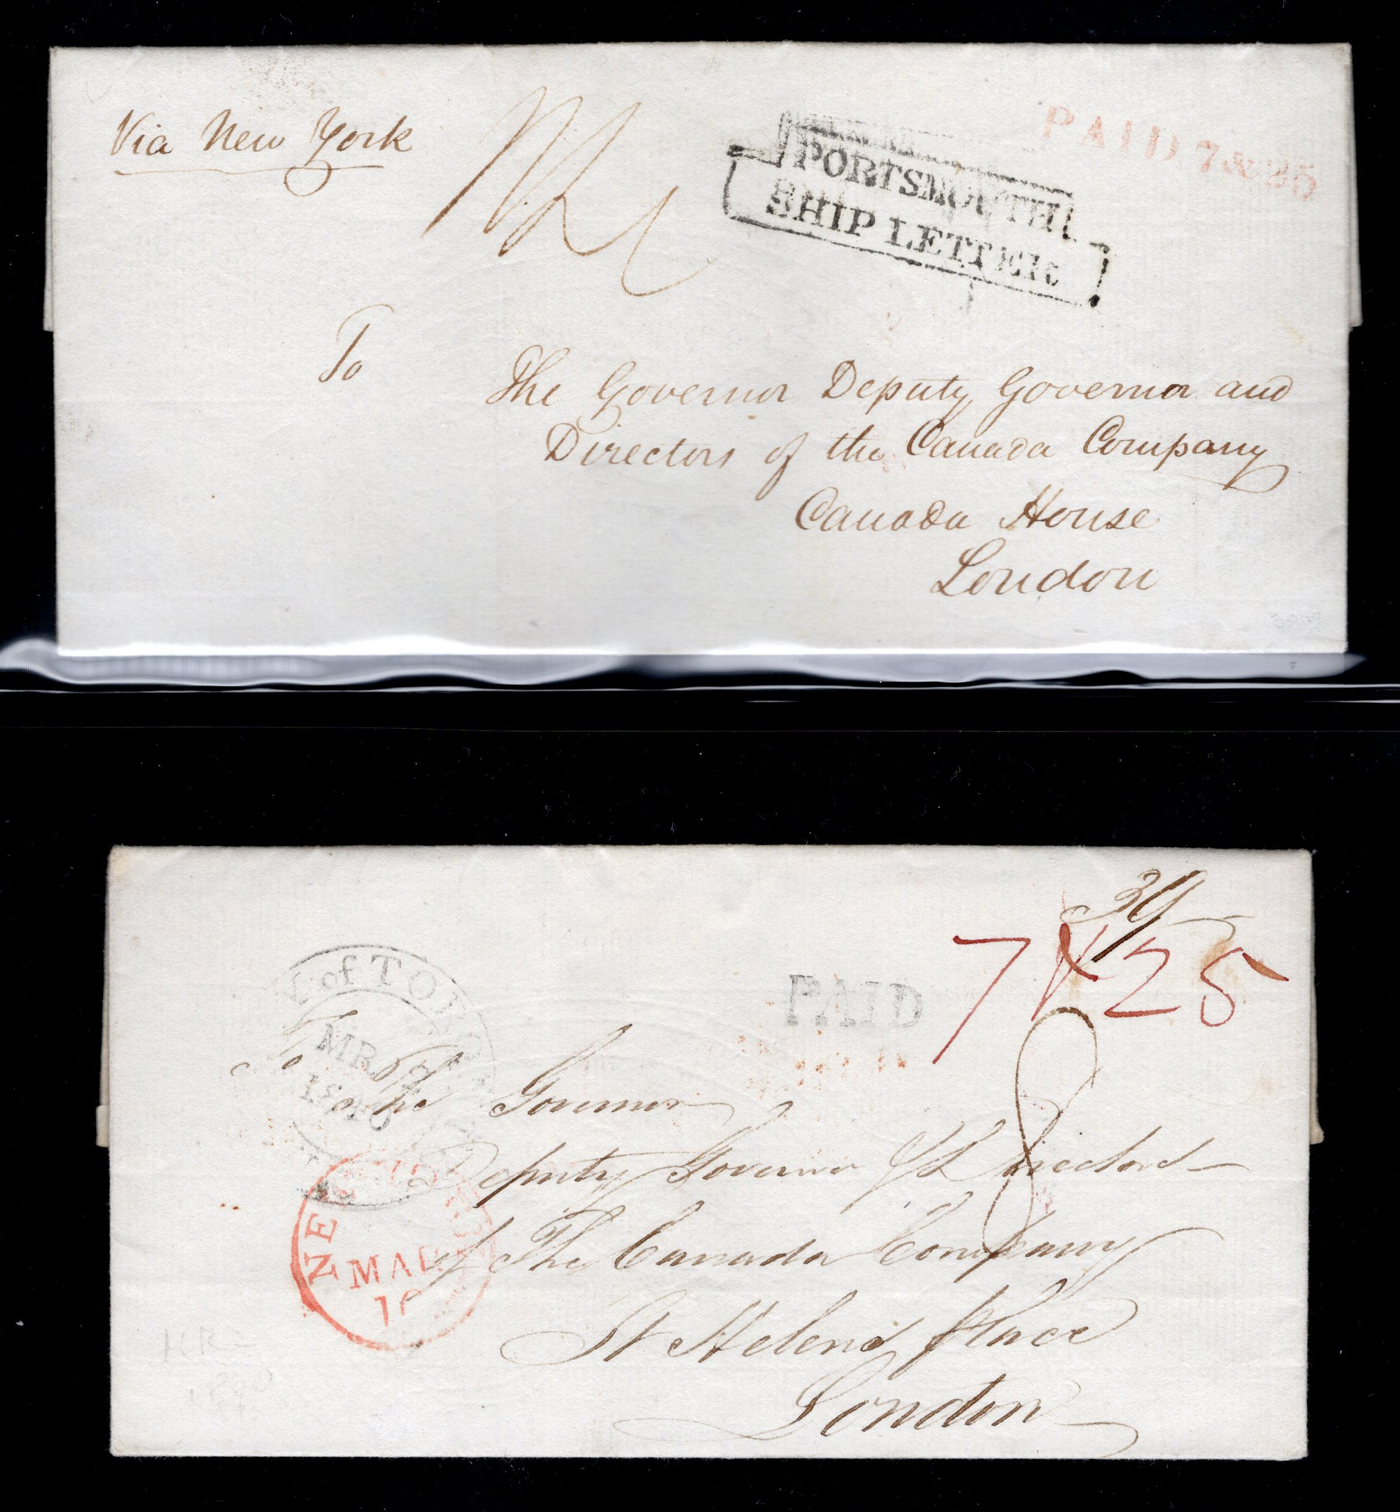 Via New York
PAID 7&25
PORTSMOUTH
SHIP LETTER
To
The Governor Deputy Governor and
Directors of the Canada Company
Canada House
London
of TORO
MR
PAID
7 & 25
8
To The Governor
Deputy Governor & Directors
of The Canada Company
St Helens Place
London
NE
MAR